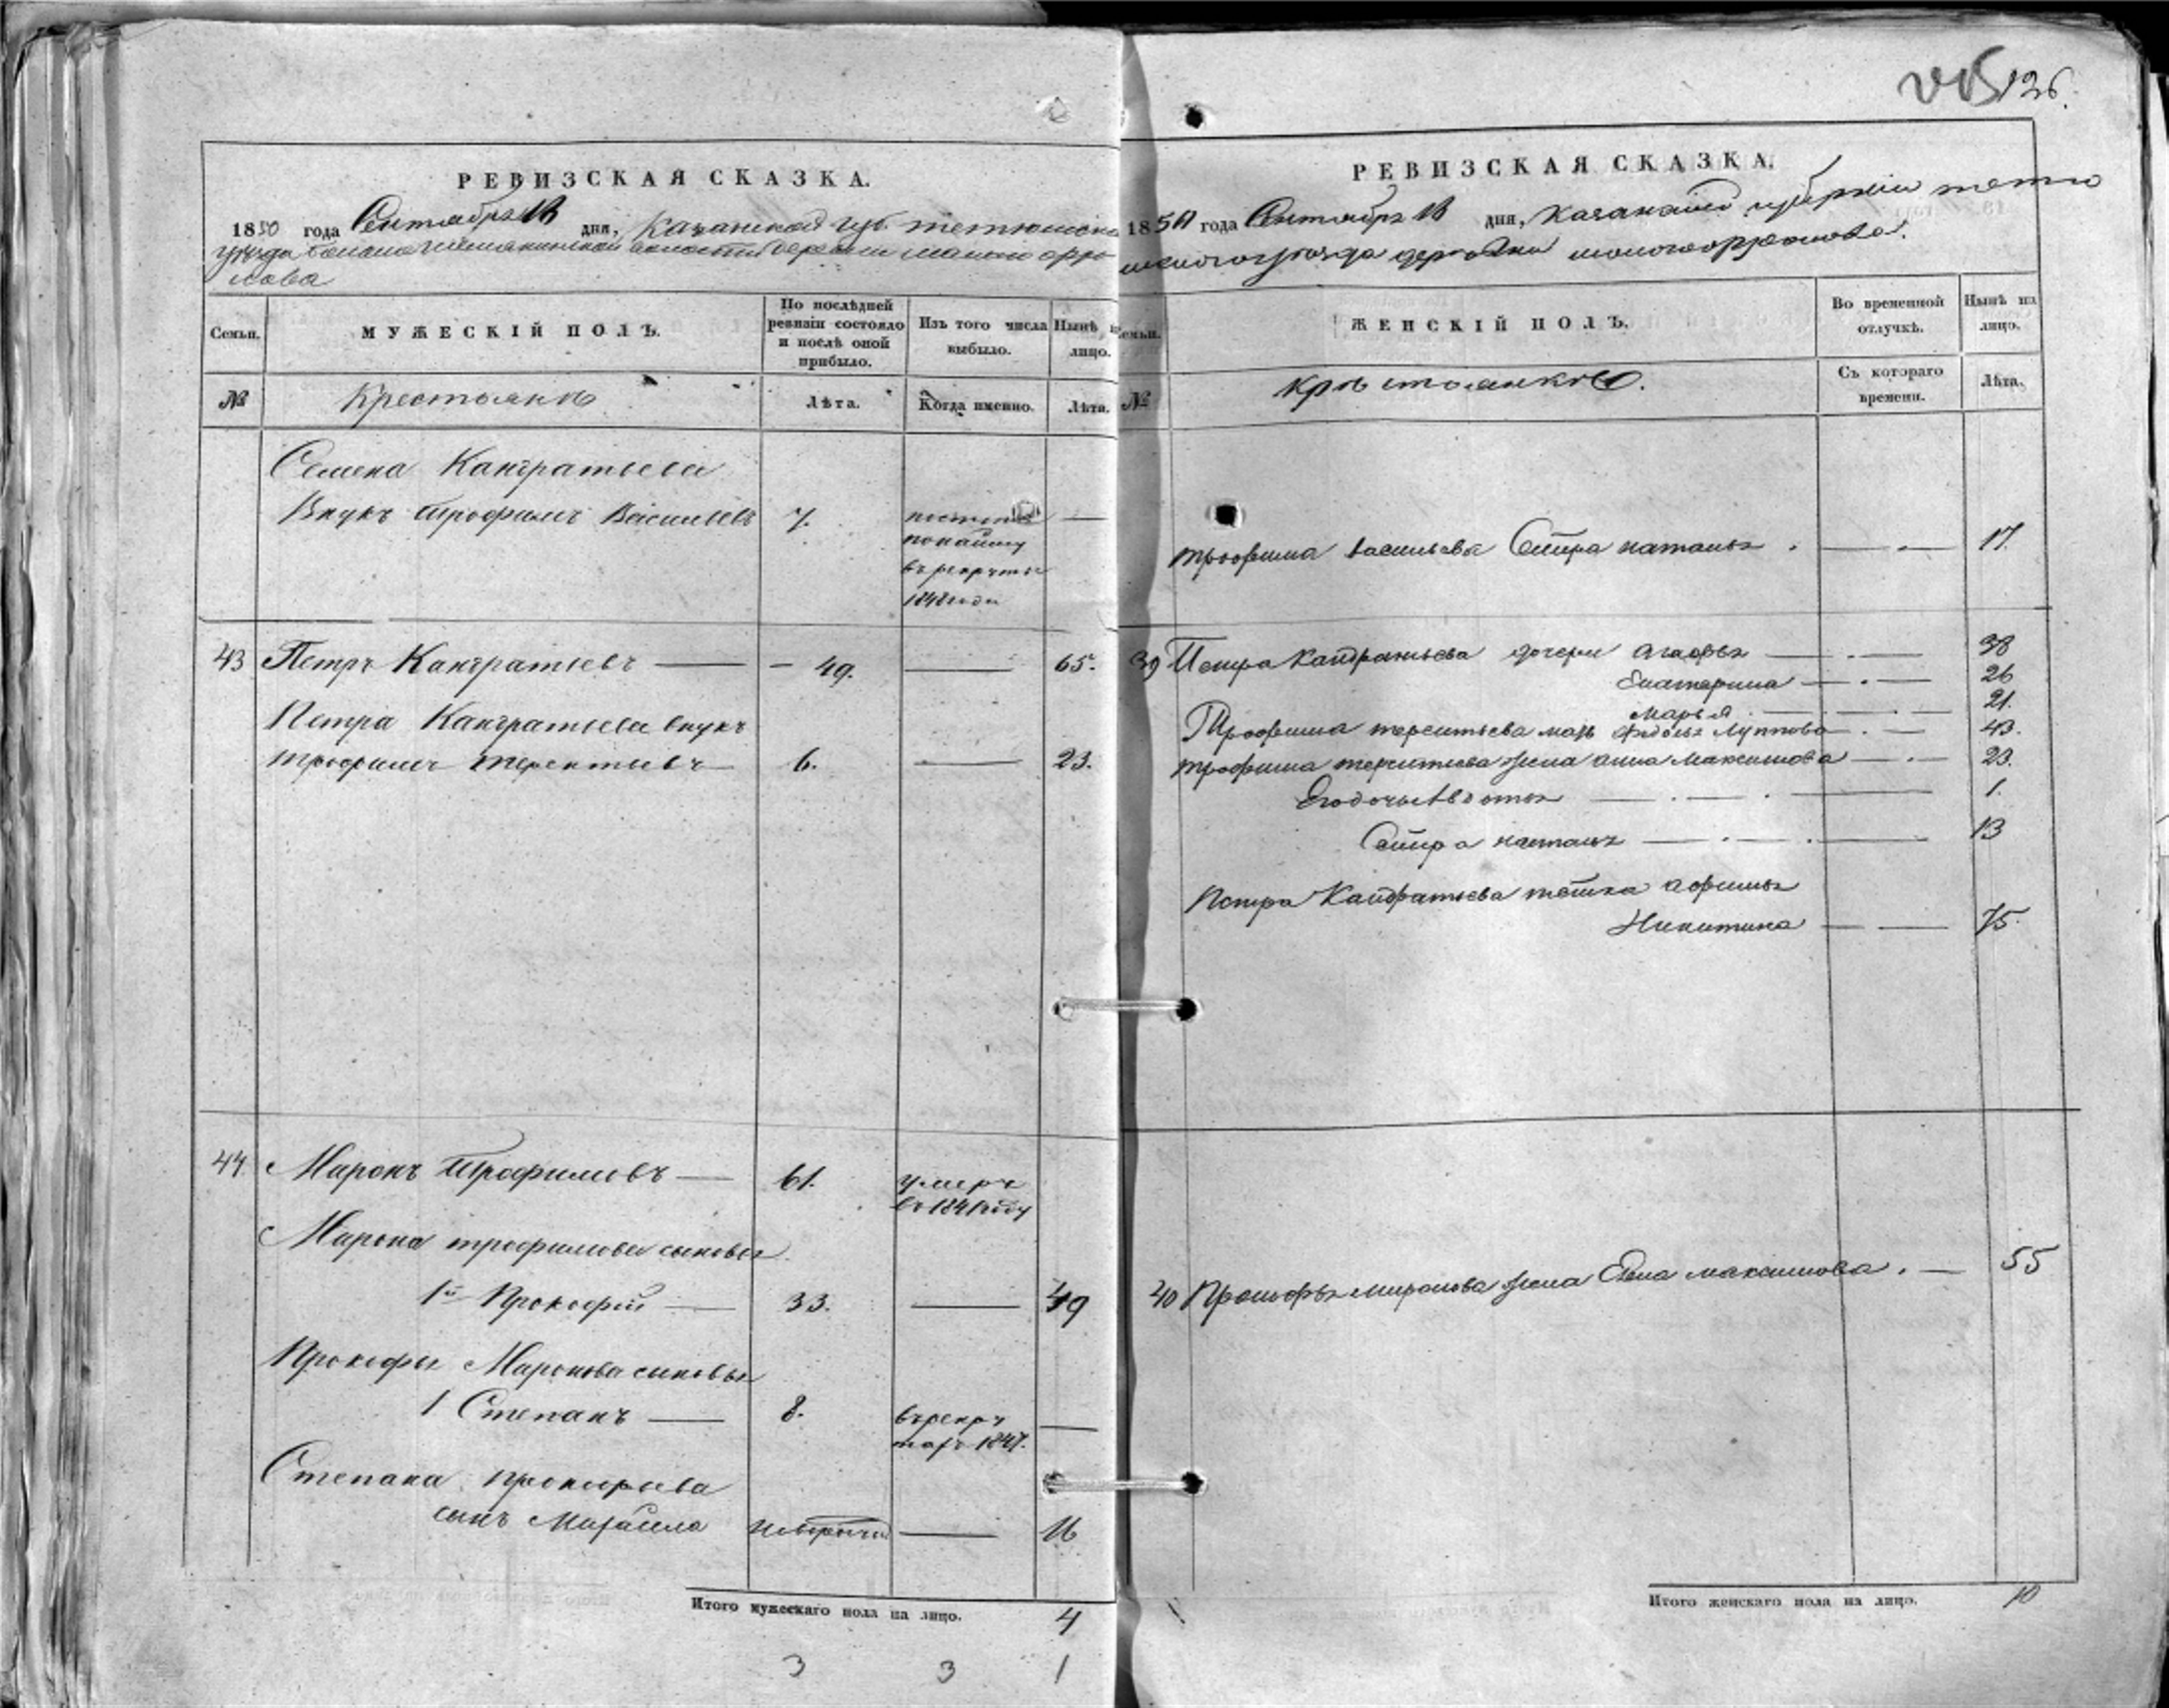 126.
РЕВИЗСКАЯ СКАЗКА.
1850 года Сентября 18 дня, Казанской губ. тетюшска
уезда волости деревни
лова
Семьи.
МУЖЕСКІЙ ПОЛЪ.
По послѣдней ревизіи состояло и послѣ оной прибыло.
Изъ того числа выбыло.
Нынѣ на лицо.
№
Крестьянъ
Лѣта.
Когда именно.
Лѣта.
Семена Кандратьева
Внукъ Трофимъ Васильевъ 7. —
въ рекруты
1848 года
43 Петръ Кандратьевъ — 49. — 65.
Петра Кандратьева внукъ
трофимъ терентьевъ 6. — 23.
44 Миронъ Трофимовъ — 61. умеръ
въ 1841 году
Мирона трофимова сыновья
1й Прокофій — 33. — 49
Прокофья Миронова сыновья
1 Степанъ — 8. въ рекру
1847. —
Степана прокофьева
сынъ Михайла — 16
Итого мужескаго пола на лицо. 4
3 3 1
РЕВИЗСКАЯ СКАЗКА.
1850 года Сентября 18 дня, Казанской губерніи тетю
шскаго уезда деревни
Семьи.
ЖЕНСКІЙ ПОЛЪ.
Во временной отлучкѣ.
Нынѣ на лицо.
№
Съ котораго времени.
Лѣта.
трофима васильева Сестра наталья — 17.
39 Петра Кандратьева дочери агафья — 38
Екатерина — 26
Марья — 21.
Трофима терентьева мать Луппова — 43.
трофима терентьева жена анна Максимова — 23.
Его дочь — 1.
Сестра наталья — 13
Петра Кандратьева тетка афимья
Никитина — 75.
40 Прокофья миронова жена максимова — 55
Итого женскаго пола на лицо. 10